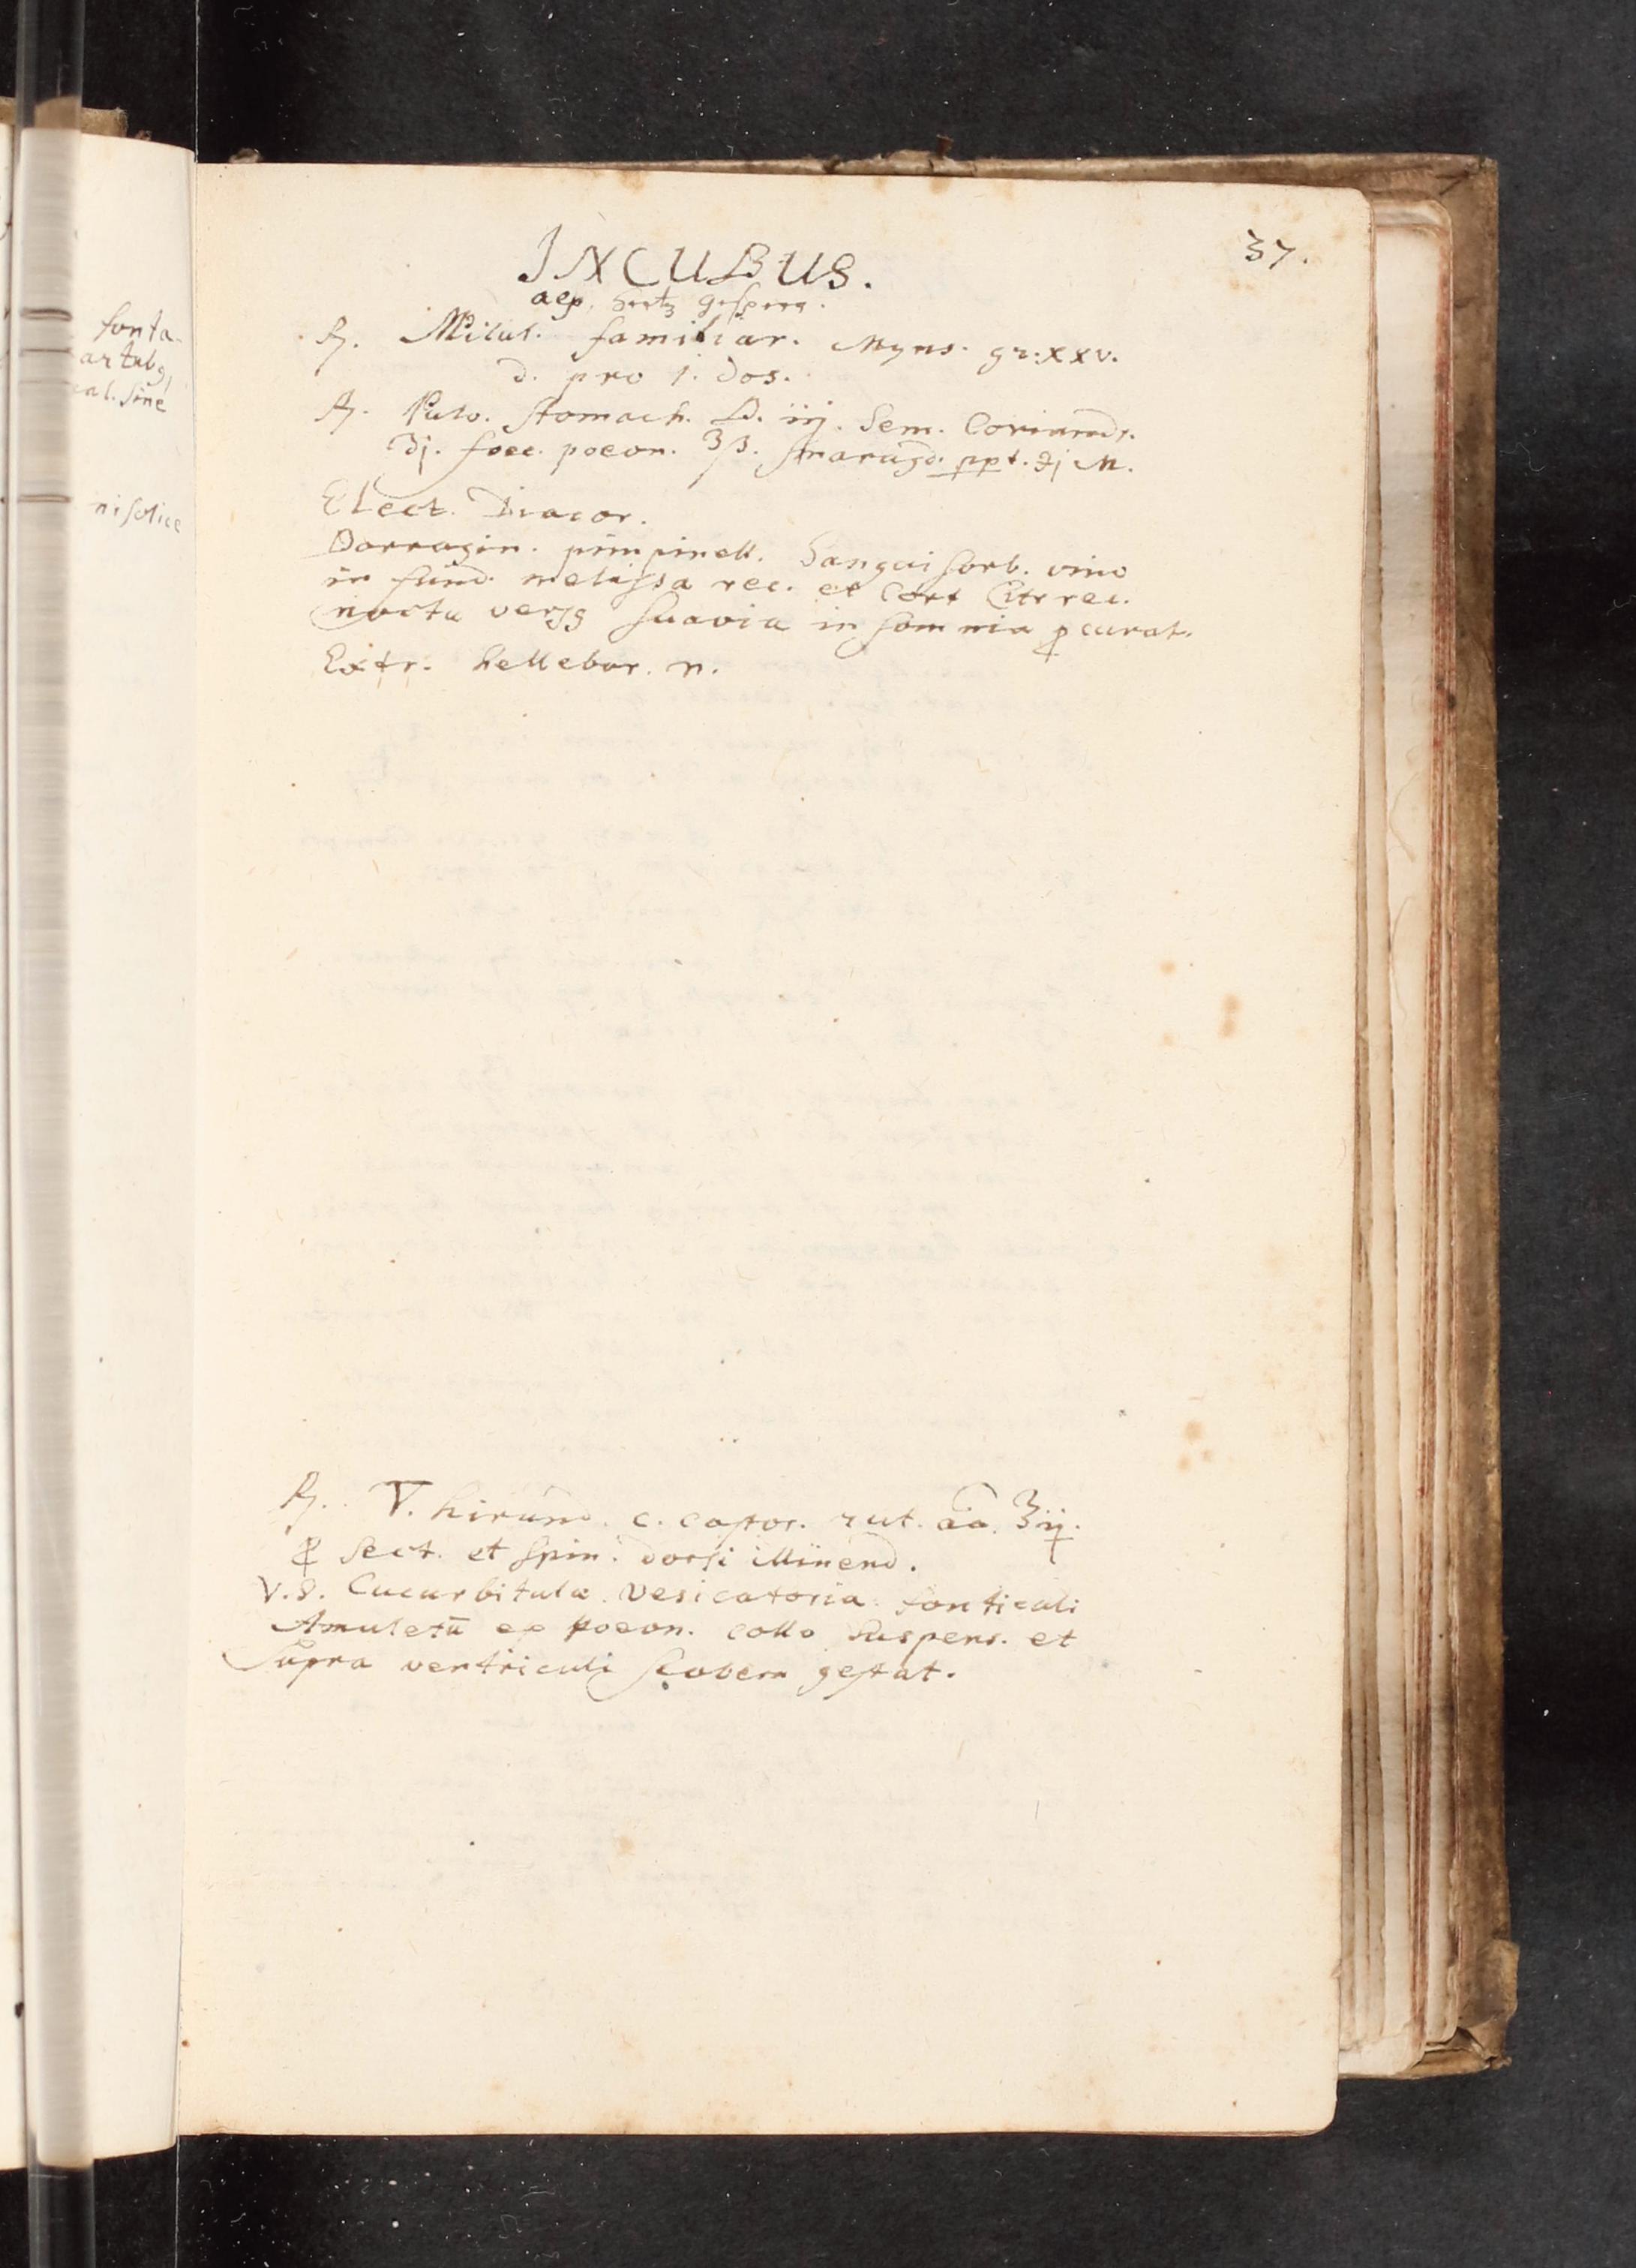 fonta-
artub9
cal. sine
nisolice
37.
INCUBUS.
alp,
℞. Pilul. familiar. Myns. gr: xxv.
d. pro 1. dos.
℞. Pulv. stomach. B. iij. Sem. Coriandr.
ʒj. foec. poeon. ʒß. smaragd. ppt. ℈j M.
Elect. Diacor.
Borragin. pimpinell. Sanguisorb. vino
in fund. melissa rec. et Cort Citr rec.
noctu vers9 suavia insomnia ꝑcurat.
Extr. hellebor. n.
℞. ∇. hirund. c. castor. rut. aa. ʒij.
ꝓ sect. et spin. dorsi illinend.
V.S. Cucurbitulæ. Vesicatoria. fonticuli
Amuletū ex poeon. collo suspens. et
supra ventriculi scobem gestat.